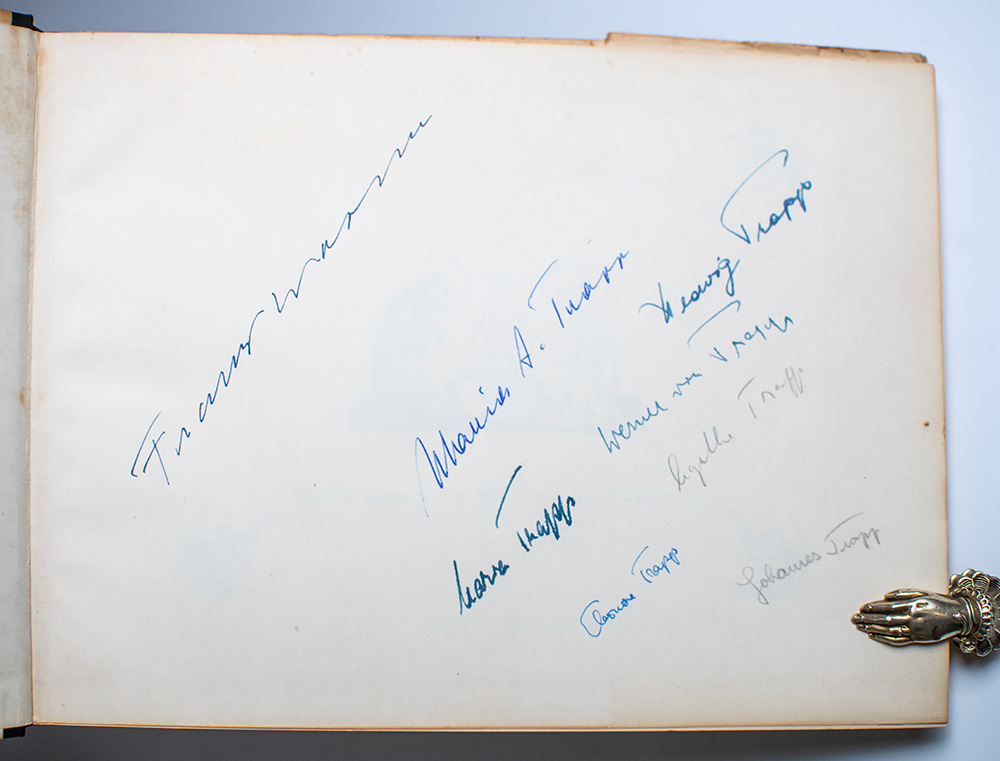 Franz Wasner
Hedwig Trapp
Maria A. Trapp
Werner von Trapp
Agathe Trapp
Maria Trapp
Eleonore Trapp
Johannes Trapp